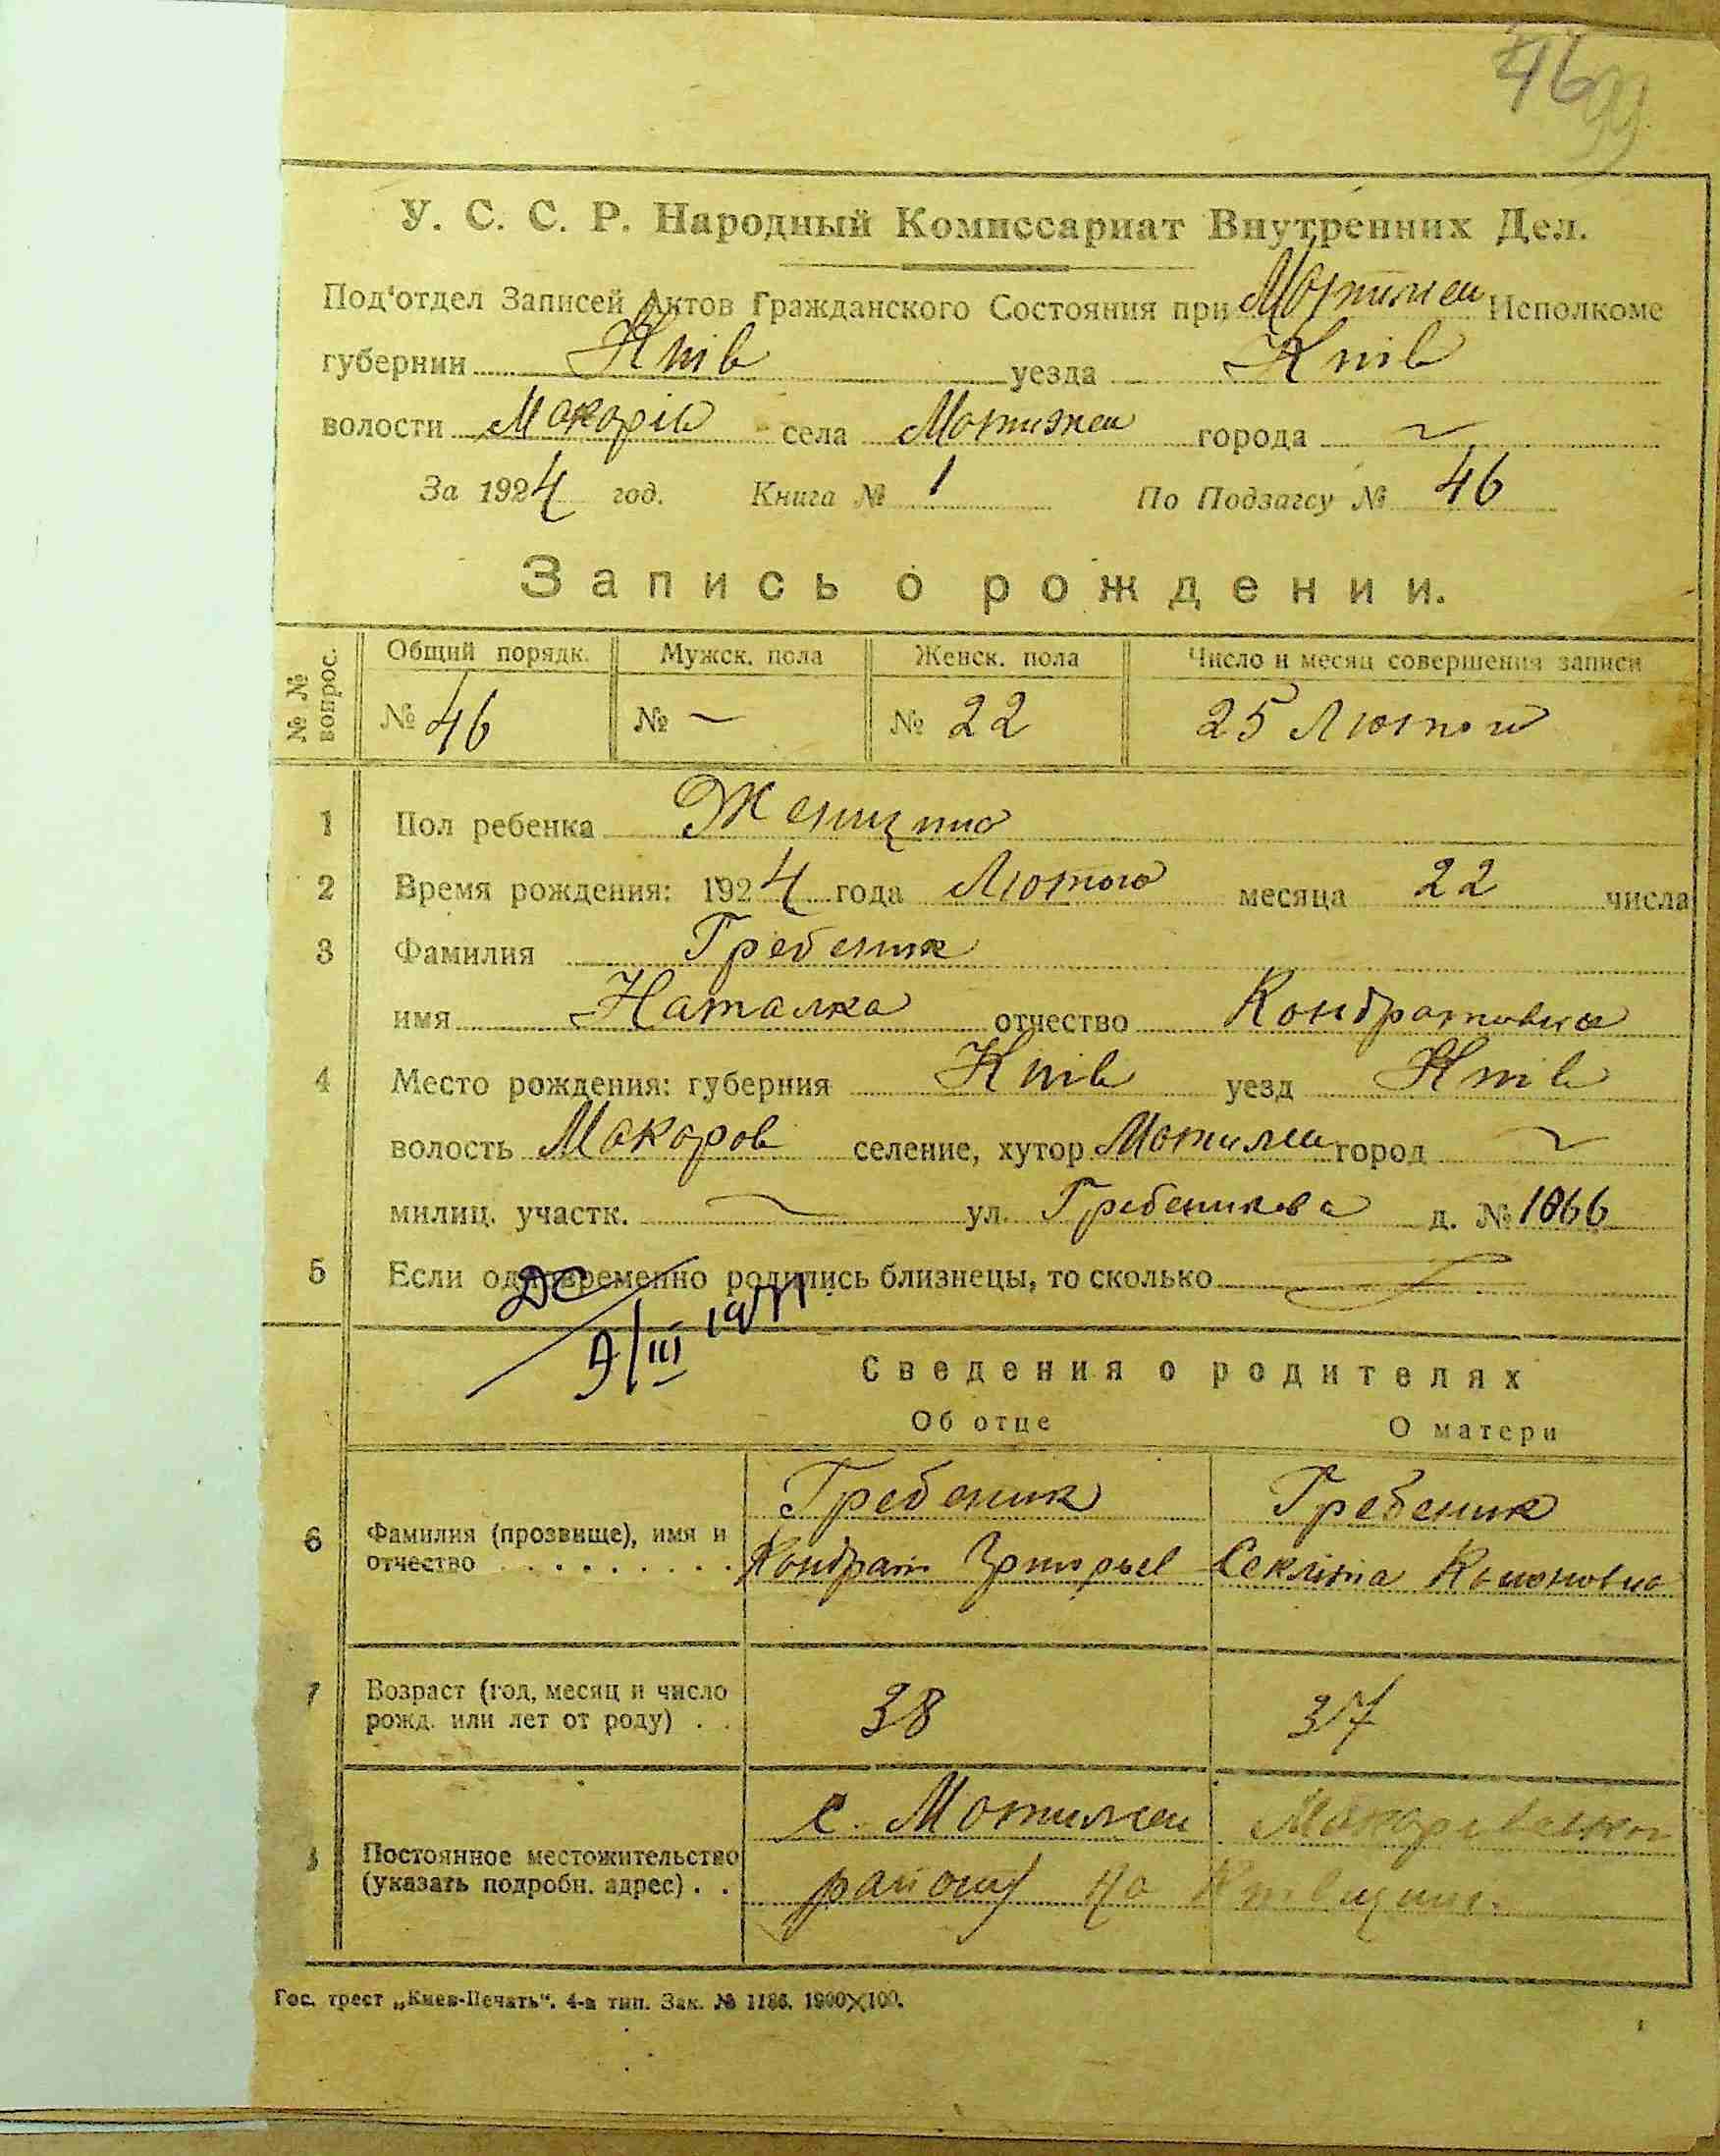 46 99
У. С. С. Р. Народный Комиссариат Внутренних Дел.
Под'отдел Записей Актов Гражданского Состояния при Мотижен Исполкоме
губернии Київ уезда Київ
волости Макарів села Мотижен города ~
За 1924 год. Книга № 1 По Подзагсу № 46
Запись о рождении.
№ № вопрос. Общий порядк. Мужск. пола Женск. пола Число и месяц совершения записи
№ 46 № — № 22 25 Лютого
1 Пол ребенка Женщина
2 Время рождения: 1924 года Лютого месяца 22 числа
3 Фамилия Гребеник
имя Наталка отчество Кондратовна
4 Место рождения: губерния Київ уезд Київ
волость Макаров селение, хутор Мотижен город ~
милиц. участк. ~ ул. Гребеникова д. № 1066
5 Если одновременно родились близнецы, то сколько
9/III 1971
Сведения о родителях
Об отце О матери
Гребеник Гребеник
6 Фамилия (прозвище), имя и
отчество . . . . . . . . . Кондрат Секліта Кононовна
7 Возраст (год, месяц и число
рожд. или лет от роду) . . 38 37
с. Мотижен Макарівського
Постоянное местожительство
(указать подробн. адрес) . . району на Київщині.
Гос. трест „Киев-Печать". 4-а тип. Зак. № 1186. 1900×100.